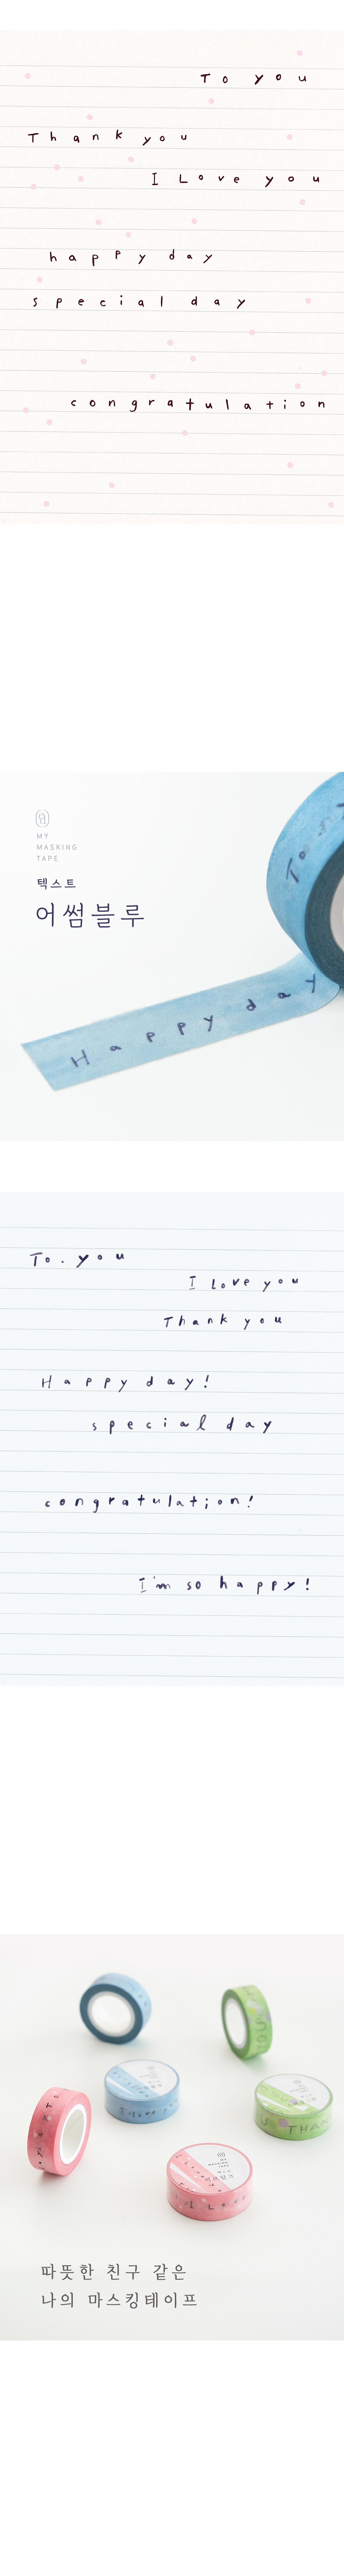 To you
Thank you
I Love you
happy day
special day
congratulation
MY
MASKING
TAPE
텍스트
어썸블루
To
Happy day
To. you
I love you
Thank you
Happy day!
special day
congratulation!
I'm so happy!
THAN
MY
MASKING
TAPE
I L
따뜻한 친구 같은
나의 마스킹테이프